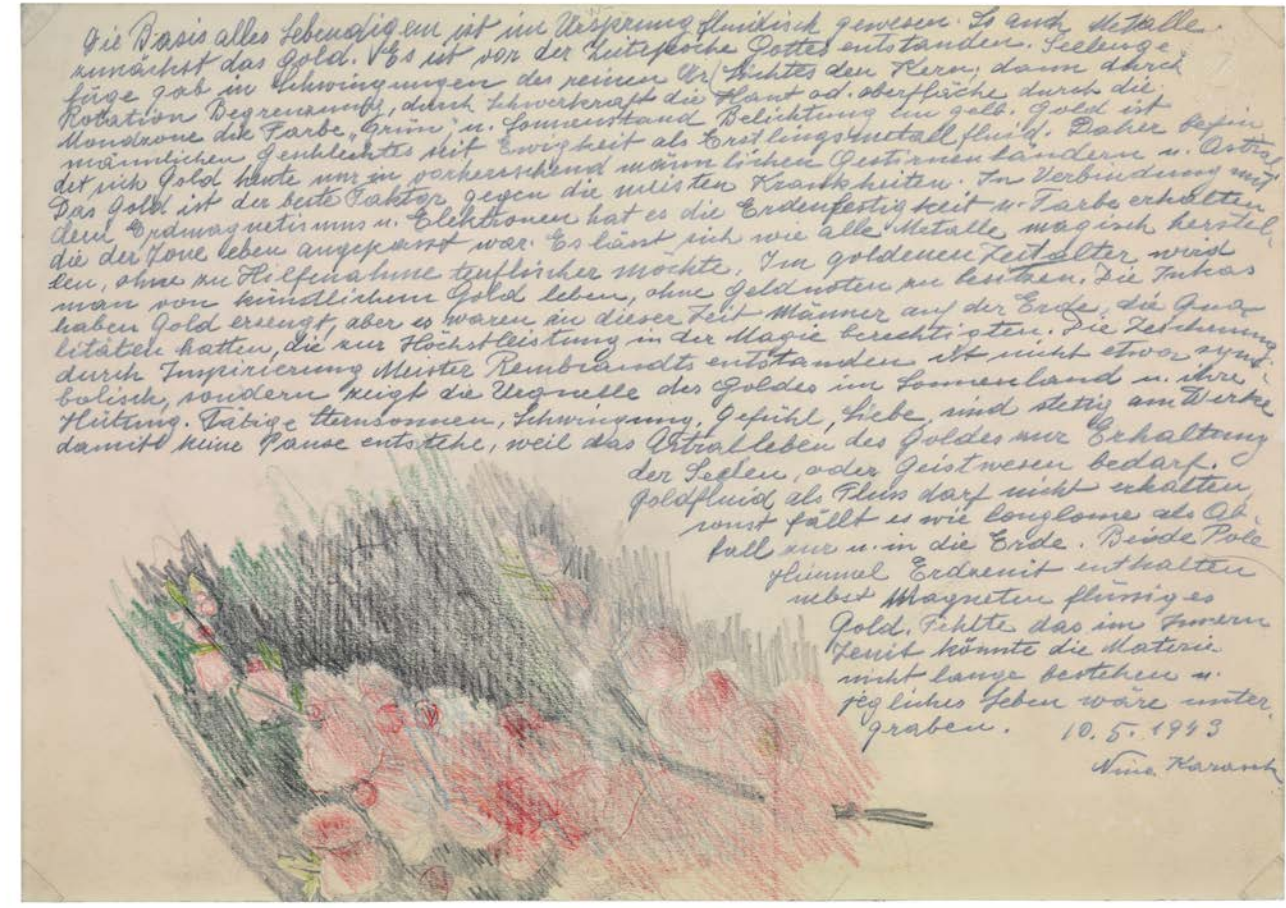 Die Basis alles Lebendigem ist im Ursprung fluidisch gewesen. So auch Metalle
zunächst das Gold. Es ist vor der Zeitepoche Gottes entstanden. Seelenge-
füge gab in Schwingungen des reinen Ur/Lichtes den Kern, dann durch
Rotation Begrenzung, durch Schwerkraft die Haut od. oberfläche durch die
Mondzone die Farbe „Grün" u. Sonnenstand Belichtung ein gelb. Gold ist
männlichen Geschlechtes seit Ewigkeit als Erstlingsmetall fluid. Daher befin
det sich Gold heute nur in vorherrschend männlichen Gestirnenbändern u. Astra
Das Gold ist der beste Faktor gegen die meisten Krankheiten. In Verbindung mit
dem Erdmagnetismus u. Elektronen hat es die Erdenfestigkeit u. Farbe erhalten
die der Zone eben angepasst war. Es lässt sich wie alle Metalle magisch herstel-
len, ohne zu Hilfenahme teuflischer Mächte. Im goldenen Zeitalter wird
man von künstlichem Gold leben, ohne Geldnoten zu benützen. Die Inkas
haben Gold erzeugt, aber es waren in dieser Zeit Männer auf der Erde, die Qua
litäten hatten, die zur Höchstleistung in der Magie berechtigten. Die Zeichnung
durch Inspirierung Meister Rembrandts entstanden ist nicht etwa sym-
bolisch, sondern zeigt die Urquelle des Goldes im Sonnenland u. ihre
Hütung. Tätige Sternsonnen, Schwingung, Gefühl, Liebe, sind stetig am Werke
damit keine Pause entstehe, weil das Astralleben des Goldes zur Erhaltung
der Seelen, oder Geistwesen bedarf.
Goldfluid als Fluss darf nicht erkalten,
sonst fällt es wie als Ab-
fall zur u. in die Erde. Beide Pole
Himmel Erdzenit enthalten
nebst Magneten flüssiges
Gold. Fehlte das im Innern
Zenit könnte die Materie
nicht lange bestehen u.
jegliches Leben wäre unter-
graben. 10.5.1943
Nina Karasek